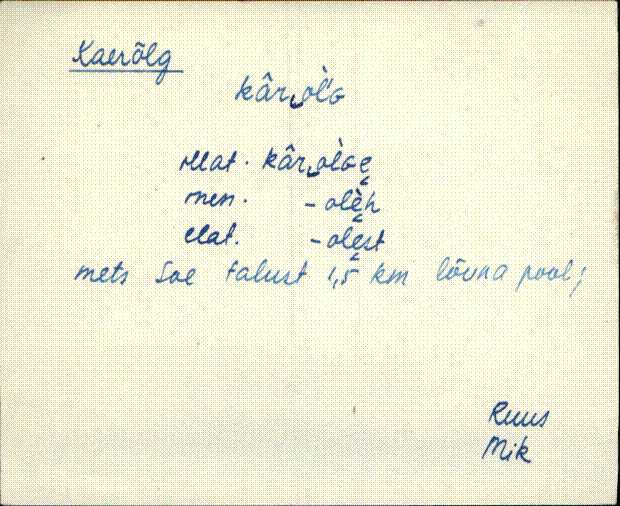 Kaerõlg
kâr‿òlG
illat. kâr‿òlGe̬
ines. -olè̬h
elat. -ole̬st
mets Soe talust 1,5 km lõuna pool;
Ruus
Mik